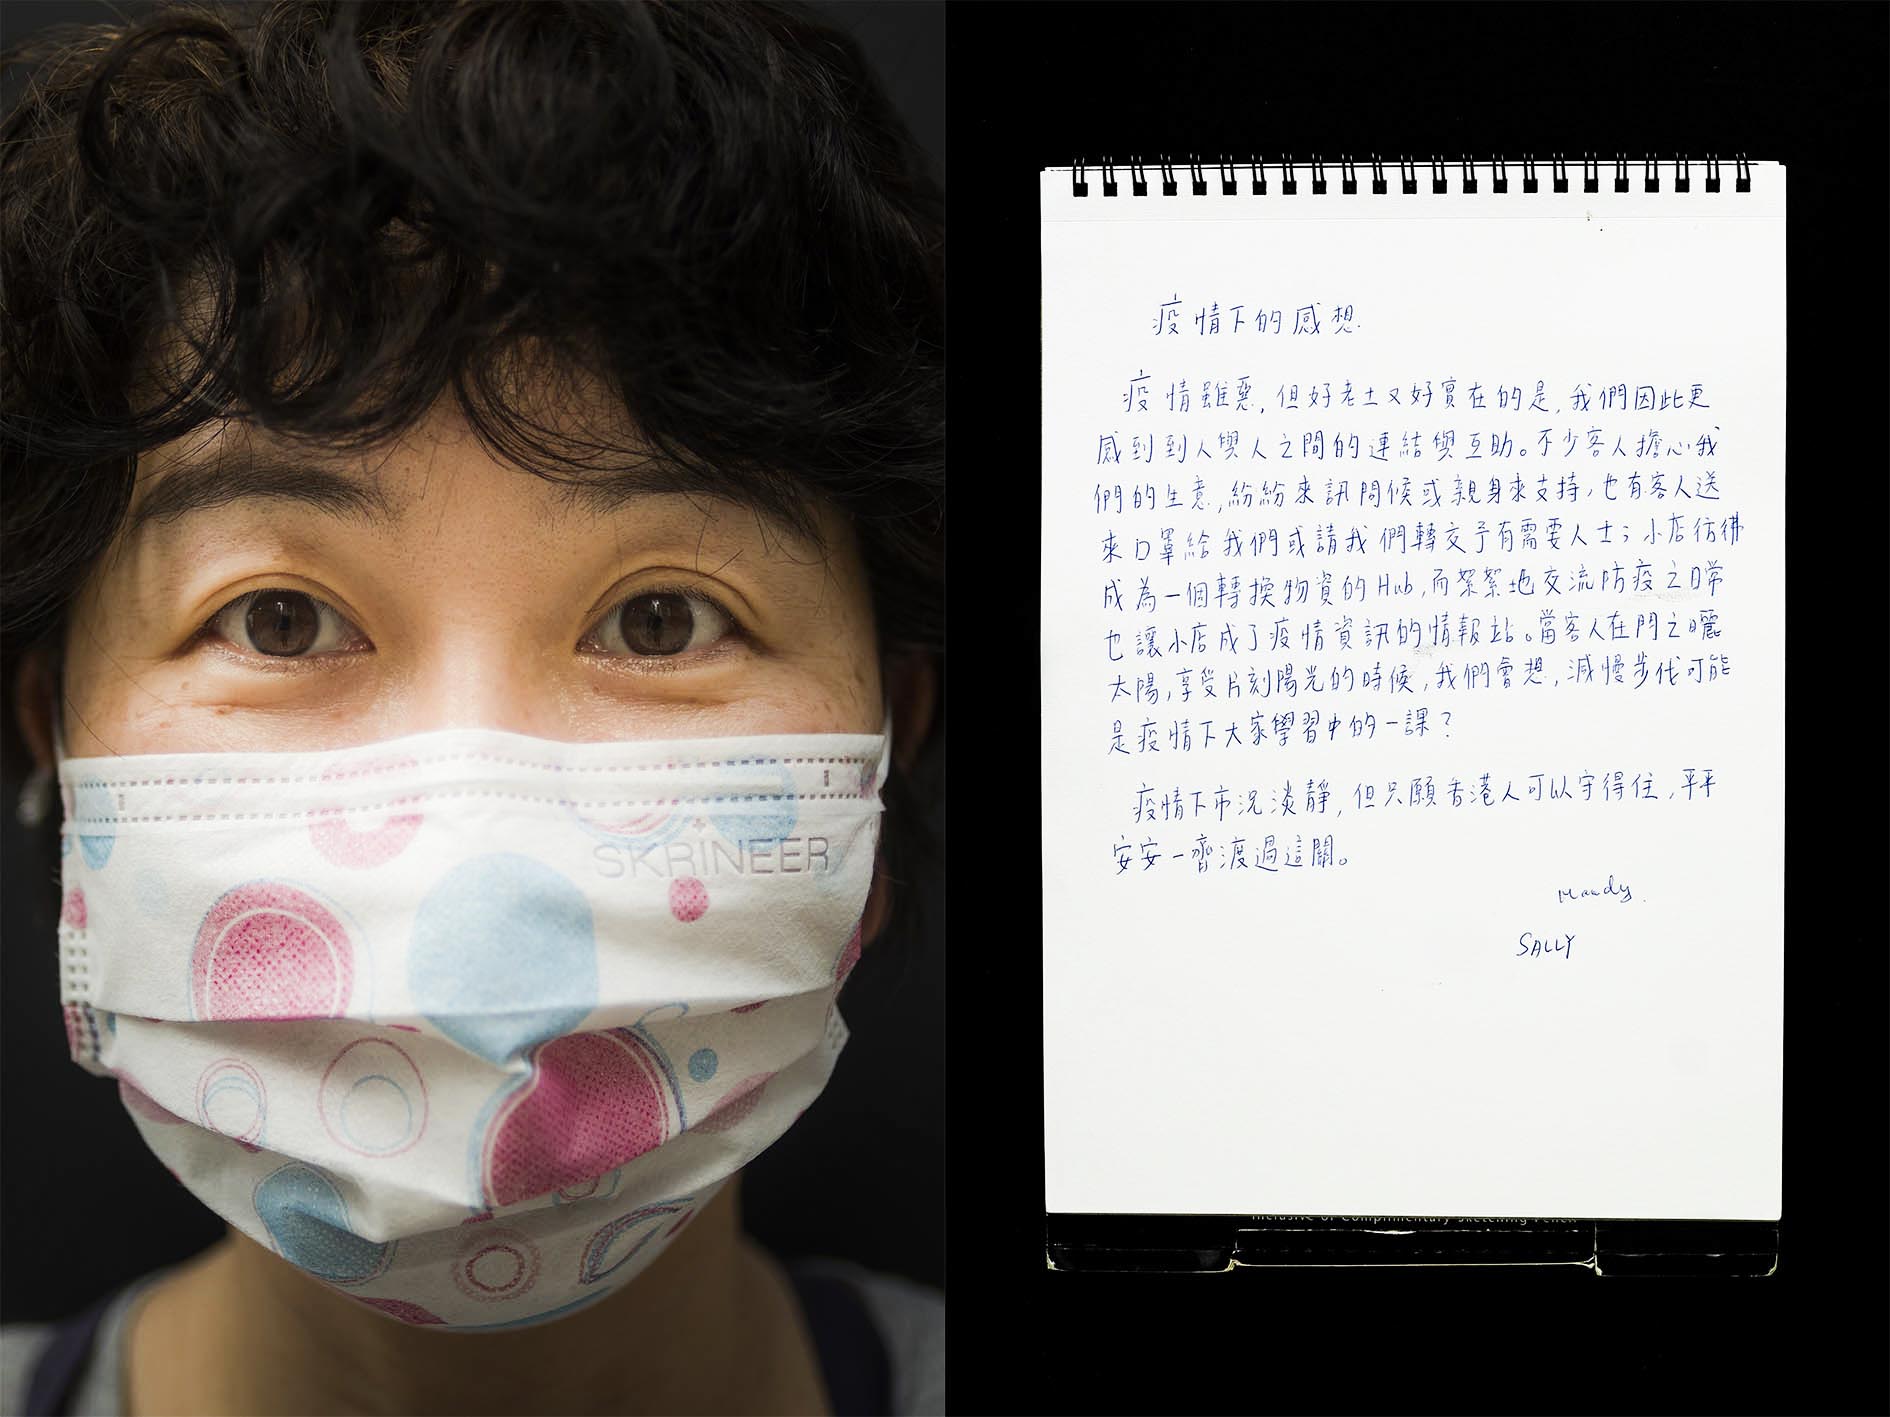 SKRINEER
疫情下的感想.
疫情雖惡,但好老土又好實在的是,我們因此更
感到到人與人之間的連結與互助。不少客人擔心我
們的生意,紛紛來訊問候或親身來支持,也有客人送
來口罩給我們或請我們轉交予有需要人士;小店彷彿
成為一個轉換物資的Hub,而絮絮地交流防疫之日常
也讓小店成了疫情資訊的情報站。當客人在門之曬
太陽,享受片刻陽光的時候,我們會想,減慢步伐可能
是疫情下大家學習中的一課?
疫情下市況淡靜,但只願香港人可以守得住,平平
安安一齊渡過這關。
Mandy.
SALLY
Inclusive of Complimentary Sketching Pencil